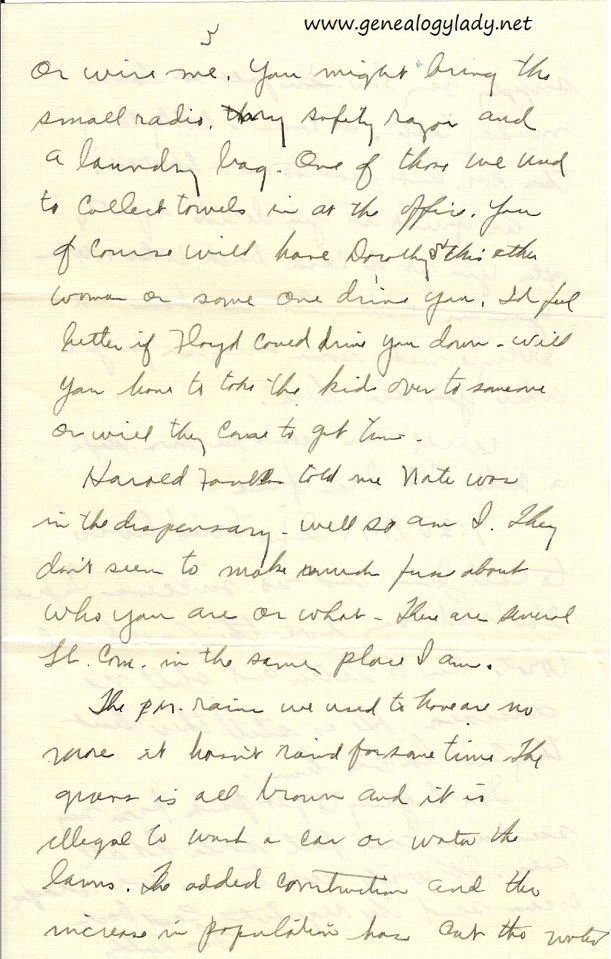 www.genealogylady.net
5
Or wire me. You might bring the
small radio. My safety razor and
a laundry bag. One of those we used
to collect towels in at the office. You
of course will have Dorothy & this other
woman or some one drive you. I'd feel
better if Floyd could drive you down - will
you have to take the kids over to someone
or will they come to get him -
Harold told me Nate was
in the dispensary - well so am I. They
don't seem to make much fuss about
who you are or what - There are several
Lt. Com. in the same place I am.
The p.m. rains we used to have are no
more it hasn't raind for some time. The
grass is all brown and it is
illegal to wash a car or water the
lawns. The added construction and the
increase in population has cut the water